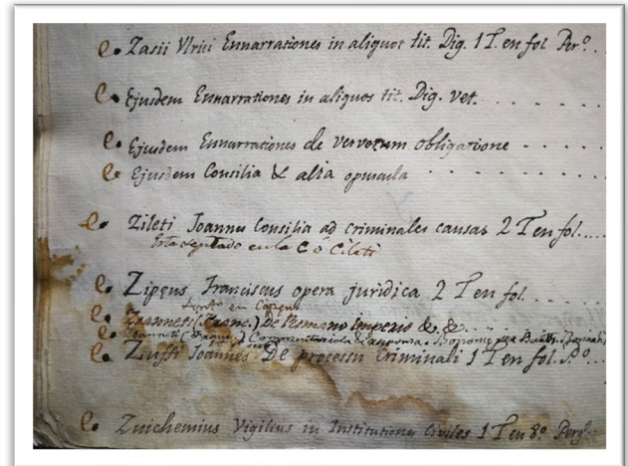 e. Zasii Vlrici Ennarrationes in aliquot tit. Dig. 1 T. en fol Per.º ..
e. Ejusdem Ennarrationes in aliquos tit. Dig. vet. . . . . .
e. Ejusdem Ennarrationes de verborum obligatione . . . .
e. Ejusdem Consilia & alia opuscula . . . . . . .
e. Zileti Joannis Consilia ad criminales causas 2 T en fol.....
en la C ó Cileti
e. Zipęus Franciscus opera juridica 2 T en fol. . . .
en
e. Zoanneti (Franc.) de Romano Imperio &. &. . .
(Franc.)
e. Zuffi Joannes De processu Criminali 1 T en fol. P.º ..
e. Zuichemius Vigilius in Institutiones Civiles 1 T en 8º Perg.º